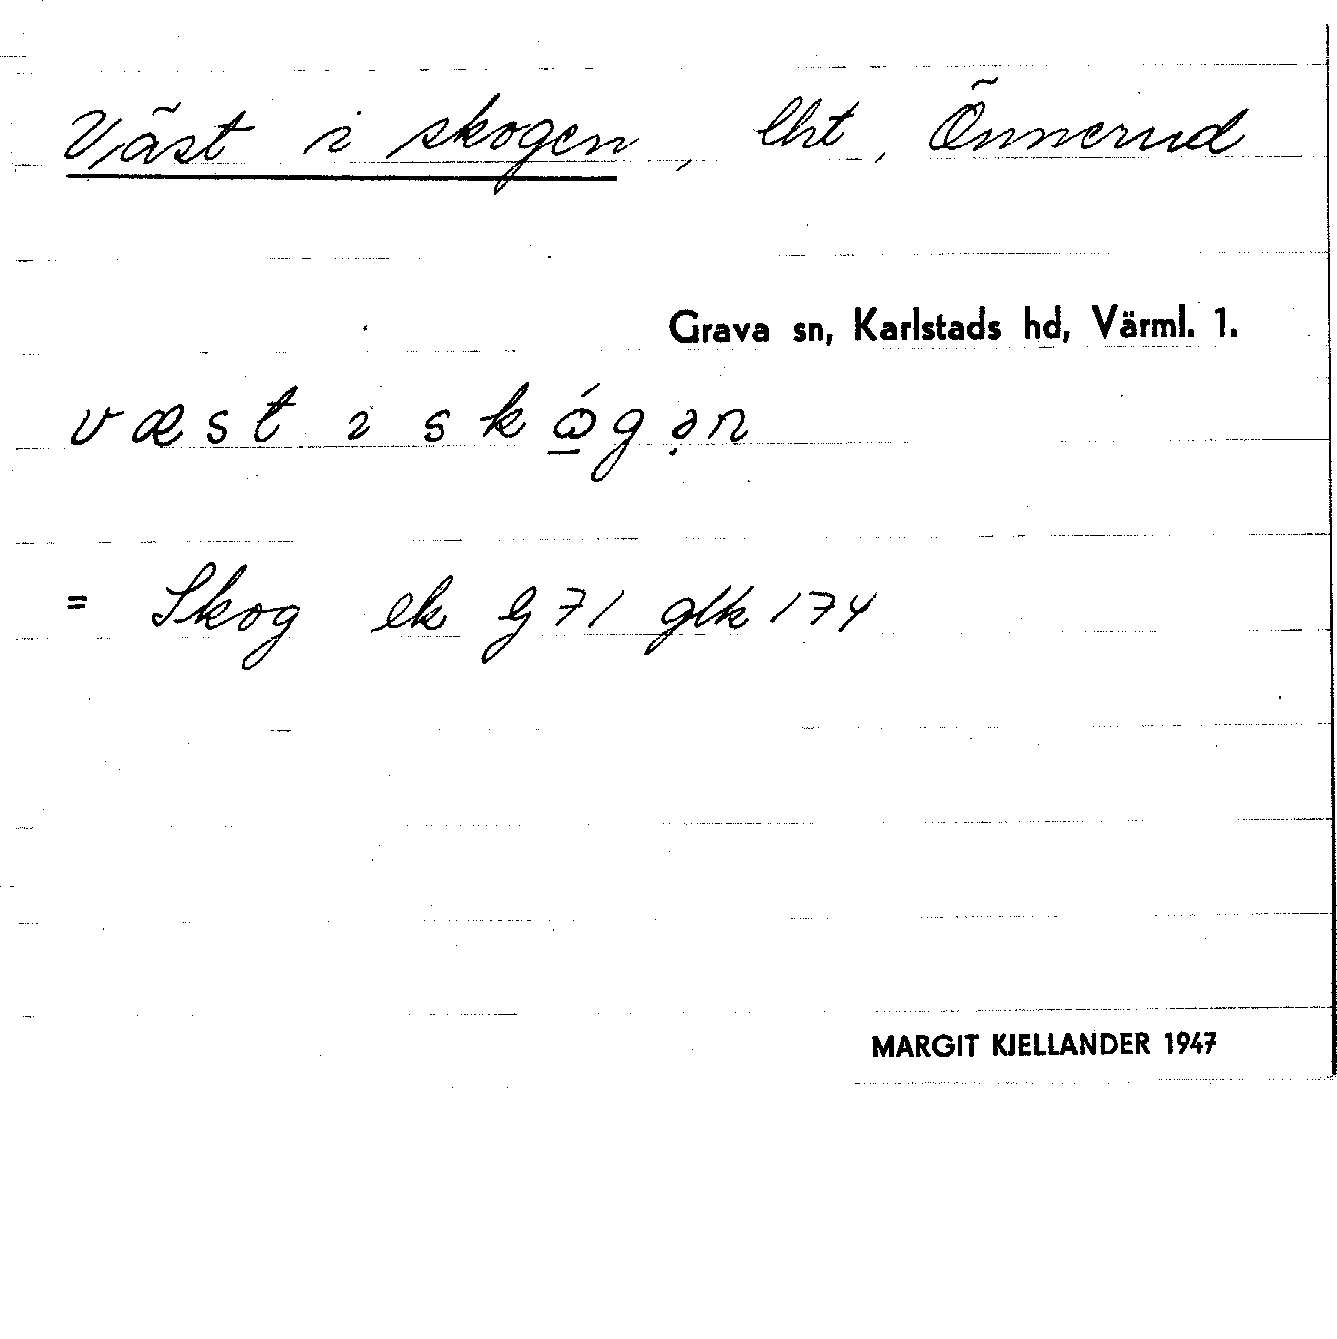 Väst i skogen, lht, Önnerud
Grava sn, Karlstads hd, Värml. 1.
væst i skǫ́gən
= Skog ek bl 71 glk 174
MARGIT KJELLANDER 1947